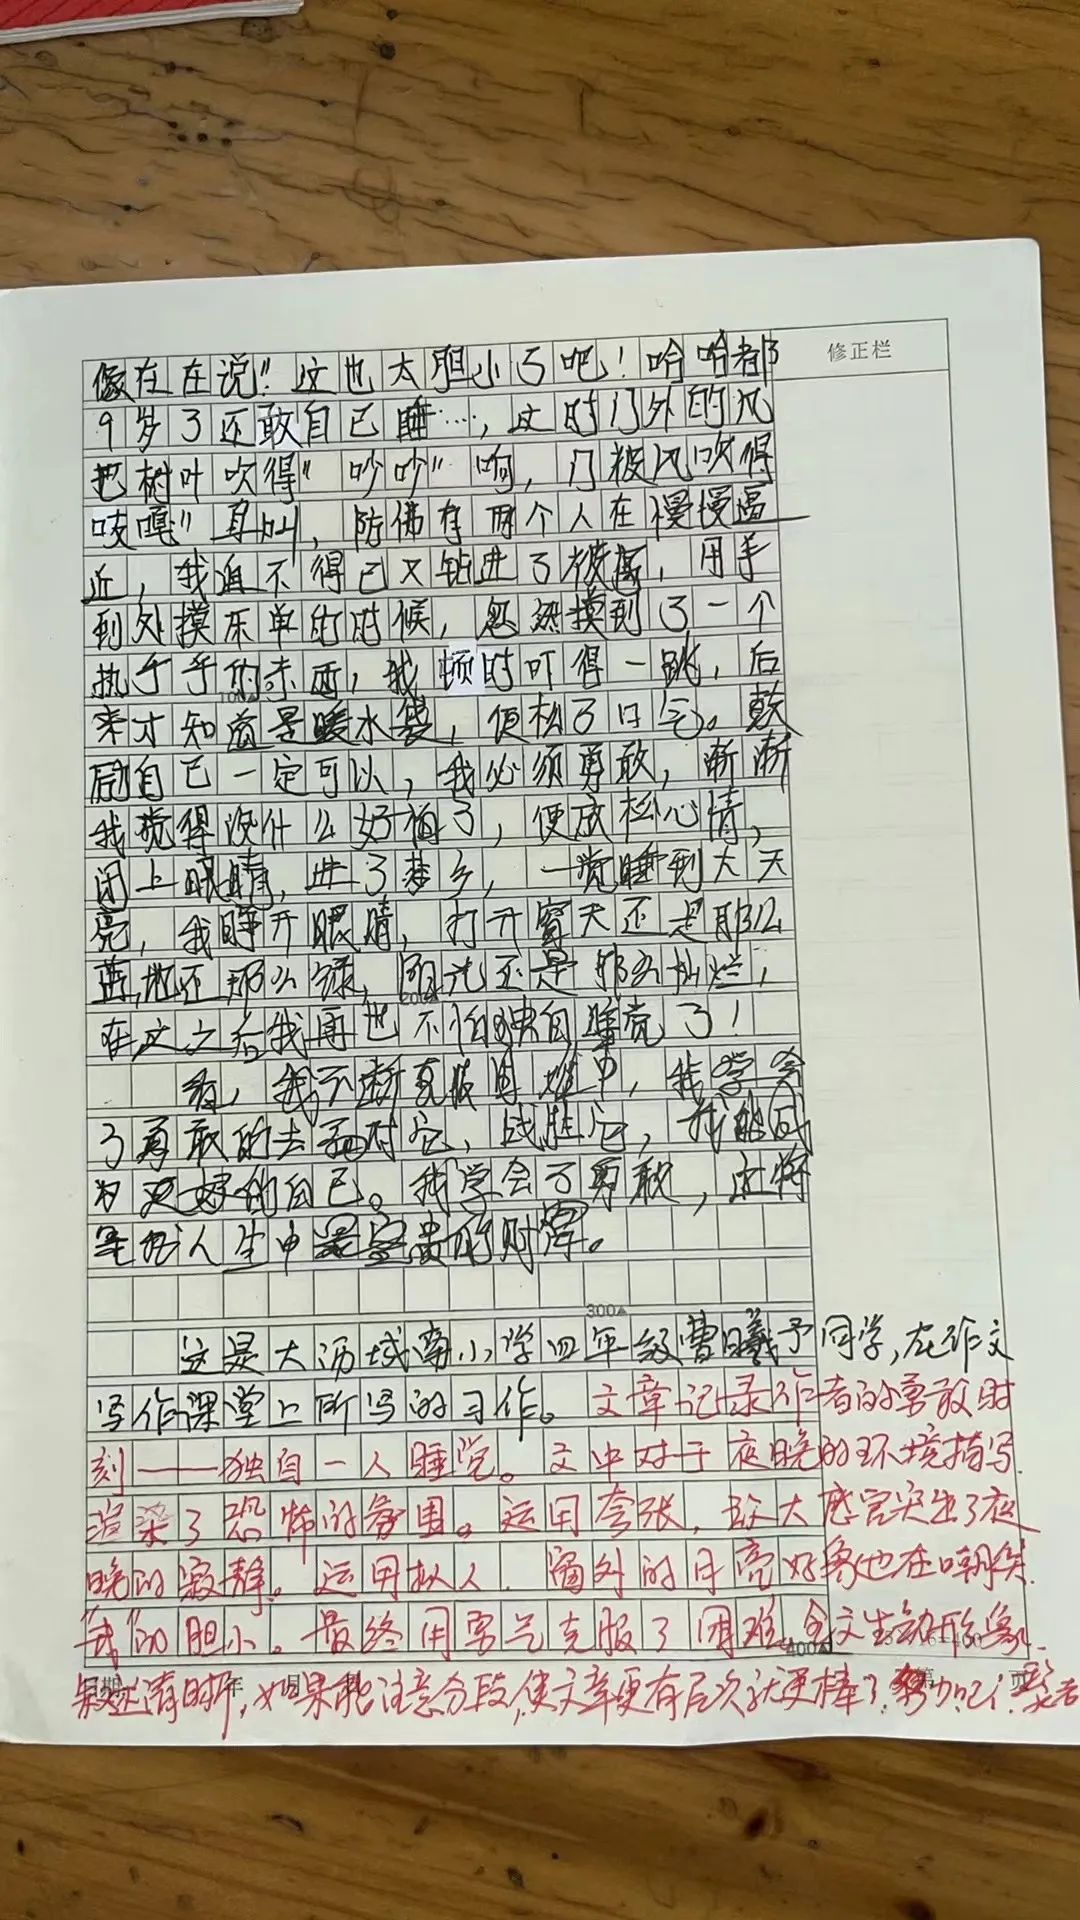 像在在说“这也太胆小了吧！哈哈都
9岁了还敢自己睡…，这时门外的风
把树叶吹得“吵吵”响，门被风吹得
吱嘎”直叫，防佛有两个人在慢慢逼
近，我迫不得已又钻进了被窝，用手
到处摸床单的时候，忽然摸到了一个
热乎乎的东西，我顿时吓得一跳，后
来才知道是暖水袋，便松了口气。鼓
励自己一定可以，我必须勇敢，渐渐
我觉得没什么好怕了，便放松心情，
闭上眼睛，进了梦乡，一觉睡到大天
亮，我睁开眼睛，打开窗天还是那么
蓝，地还那么绿，阳光还是那么灿烂，
在这之后我再也不怕独自睡觉了！
看，我不断克服困难中，我学会
了勇敢的去面对它，战胜它，我能成
为更好的自己。我学会了勇敢，这将
是我人生中最宝贵的财富。
300▲
这是大沥城南小学四年级曹曦予同学，在作文
写作课堂上所写的习作。文章记录作者的勇敢时
刻——独自一人睡觉。文中对于夜晚的环境描写
渲染了恐怖的氛围。运用夸张，放大感官突出了夜
晚的寂静。运用拟人，窗外的月亮好象也在嘲笑
“我”的胆小。最终用勇气克服了困难，全文生动形象
叙述清晰，如果能注意分段，使文章更有层次就更棒了
修正栏
100▲
200▲
400▲
日期 年 月
第 页